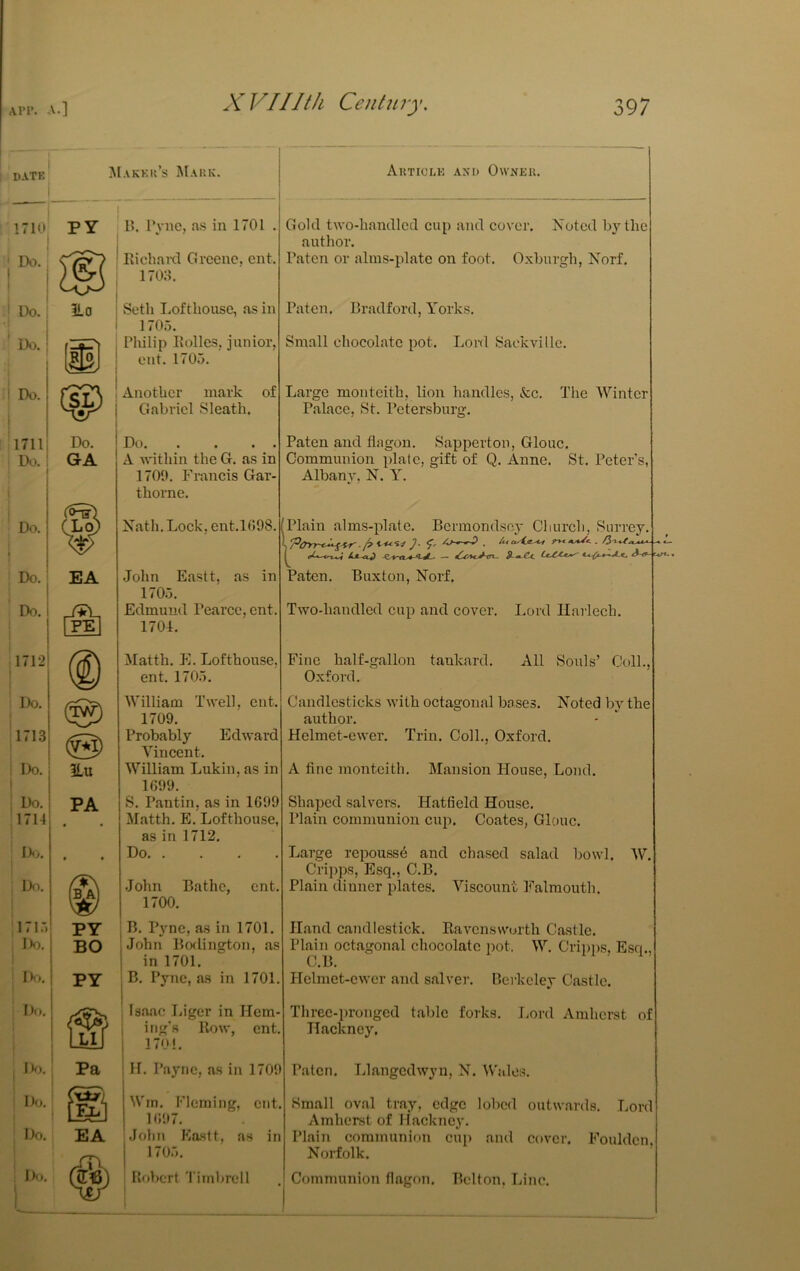 APP. A.]
XVIIIth Century.
397
DATE
Maker's Mark.
Article and Owner.
1710 PY B. Pyne, as in 1701 . Gold two-handled cup and cover. Noted by the
author.
Do. Richard Greene, ent. Paten or alms-plate on foot. Oxburgh, Norf.
1703.
Do. Lo Seth Lofthouse, as in Paten. Bradford, Yorks.
1705.
Do. Philip Rolles, junior, Small chocolate pot. Lord Sackville.
ent. 1705.
Do. SL Another mark of Large monteith, lion handles, &c. The Winter
Gabriel Sleath. Palace, St. Petersburg.
1711 Do. Do. . . . . Paten and flagon. Sapperton, Glouc.
Do. GA A within the G. as in Communion plate, gift of Q. Anne. St. Peter's,
1709. Francis Gar- Albany, N. Y.
thorne.
Do. LO Nath. Lock, ent. 1698. Plain alms-plate. Bermondsey Church, Surrey.
Do. EA John Eastt, as in Paten. Buxton, Norf.
1705.
Do. PE Edmund Pearce, ent. Two-handled cup and cover. Lord Harlech.
1704.
1712 Matth. E. Lofthouse, Fine half-gallon tankard. All Souls' Coll.,
ent. 1705. Oxford.
Do. TW William Twell, ent. Candlesticks with octagonal bases. Noted by the
1709. author.
1713 V★I Probably Edward Helmet-ewer. Trin. Coll., Oxford.
Vincent.
Do. Lu William Lukin, as in A fine monteith. Mansion House, Lond.
1699.
Do. PA S. Pantin, as in 1699 Shaped salvers. Hatfield House.
1714 . . Matth. E. Lofthouse, Plain communion cup. Coates, Glouc.
as in 1712.
Do. . . Do. . . . . Large repoussé and chased salad bowl. W.
Cripps, Esq., C.B.
Do. BA John Bathe, ent. Plain dinner plates. Viscount Falmouth.
1700.
1715 PY B. Pyne, as in 1701. Hand candlestick. Ravensworth Castle.
Do. BO John Bodington, as Plain octagonal chocolate pot. W. Cripps, Esq.,
in 1701. C.B.
Do. PY B. Pyne, as in 1701. Helmet-ewer and salver. Berkeley Castle.
Do. LI Isaac Liger in Hem- Three-pronged table forks. Lord Amherst of
ing's Row, ent. Hackney.
1704.
Do. Pa H. Payne, as in 1709 Paten. Llangedwyn, N. Wales.
Do. FL Wm. Fleming, ent. Small oval tray, edge lobed outwards. Lord
1697. Amherst of Hackney.
Do. EA John Eastt, as in Plain communion cup and cover. Foulden,
1705. Norfolk.
Do. Robert Timbrell . Communion flagon. Belton, Linc.